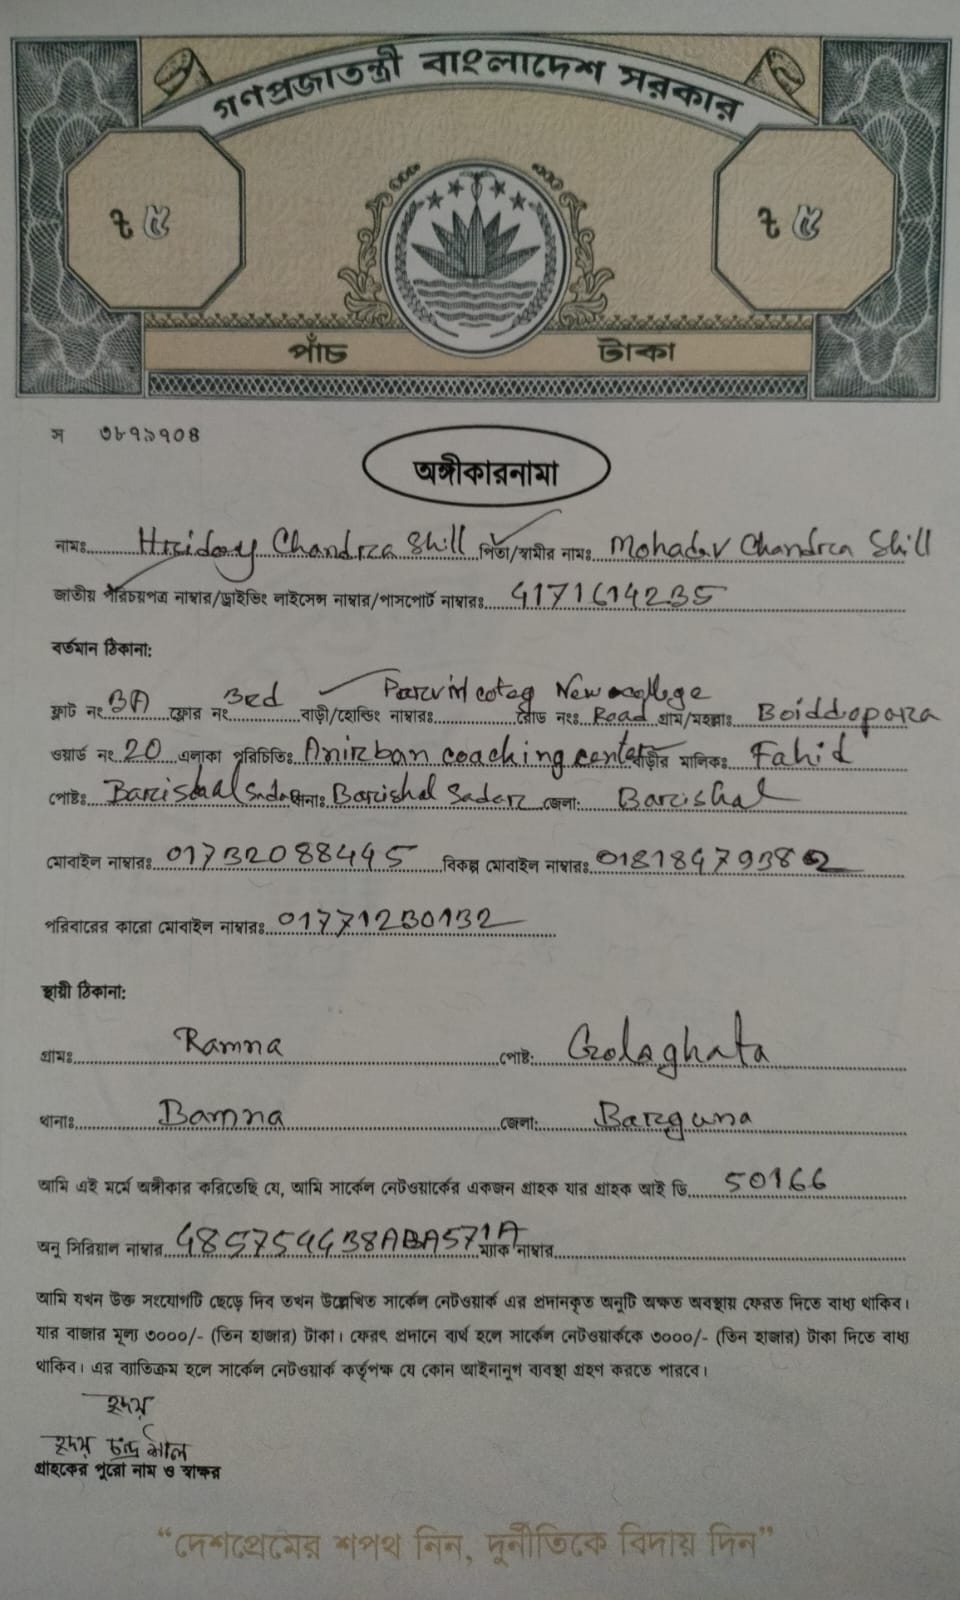 গণপ্রজাতন্ত্রী বাংলাদেশ সরকার
৳ ৫ ৳ ৫
পাঁচ টাকা
স ৩৮৭৯৭০৪
অঙ্গীকারনামা
নামঃ Hridoy Chandra Shill পিতা/স্বামীর নামঃ Mohadev Chandra Shill
জাতীয় পরিচয়পত্র নাম্বার/ড্রাইভিং লাইসেন্স নাম্বার/পাসপোর্ট নাম্বারঃ 4171614235
বর্তমান ঠিকানা:
ফ্লাট নং 3A ফ্লোর নং 3rd বাড়ী/হোল্ডিং নাম্বারঃ New college রোড নংঃ Road গ্রাম/মহল্লাঃ Boiddopara
ওয়ার্ড নং 20 এলাকা পরিচিতিঃ Anirban coaching center বাড়ীর মালিকঃ Fahid
পোষ্টঃ Barishal Sadar থানাঃ Barishal Sadar জেলা: Barishal
মোবাইল নাম্বারঃ 01732088445 বিকল্প মোবাইল নাম্বারঃ
পরিবারের কারো মোবাইল নাম্বারঃ 01771230132
স্থায়ী ঠিকানা:
গ্রামঃ Ramna পোষ্ট: Golaghata
থানাঃ Bamna জেলা: Barguna
আমি এই মর্মে অঙ্গীকার করিতেছি যে, আমি সার্কেল নেটওয়ার্কের একজন গ্রাহক যার গ্রাহক আই ডি 50166
অনু সিরিয়াল নাম্বার 485754438ABA571A ম্যাক নাম্বার
আমি যখন উক্ত সংযোগটি ছেড়ে দিব তখন উল্লেখিত সার্কেল নেটওয়ার্ক এর প্রদানকৃত অনুটি অক্ষত অবস্থায় ফেরত দিতে বাধ্য থাকিব।
যার বাজার মূল্য ৩০০০/- (তিন হাজার) টাকা। ফেরৎ প্রদানে ব্যর্থ হলে সার্কেল নেটওয়ার্ককে ৩০০০/- (তিন হাজার) টাকা দিতে বাধ্য
থাকিব। এর ব্যতিক্রম হলে সার্কেল নেটওয়ার্ক কর্তৃপক্ষ যে কোন আইনানুগ ব্যবস্থা গ্রহণ করতে পারবে।
হৃদয়
হৃদয় চন্দ্র শীল
গ্রাহকের পুরো নাম ও স্বাক্ষর
“দেশপ্রেমের শপথ নিন, দুর্নীতিকে বিদায় দিন”